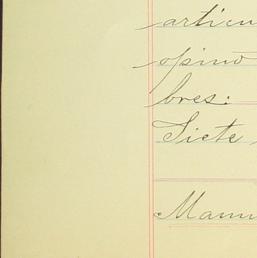 articu
opino
bres:
Siete
Manu